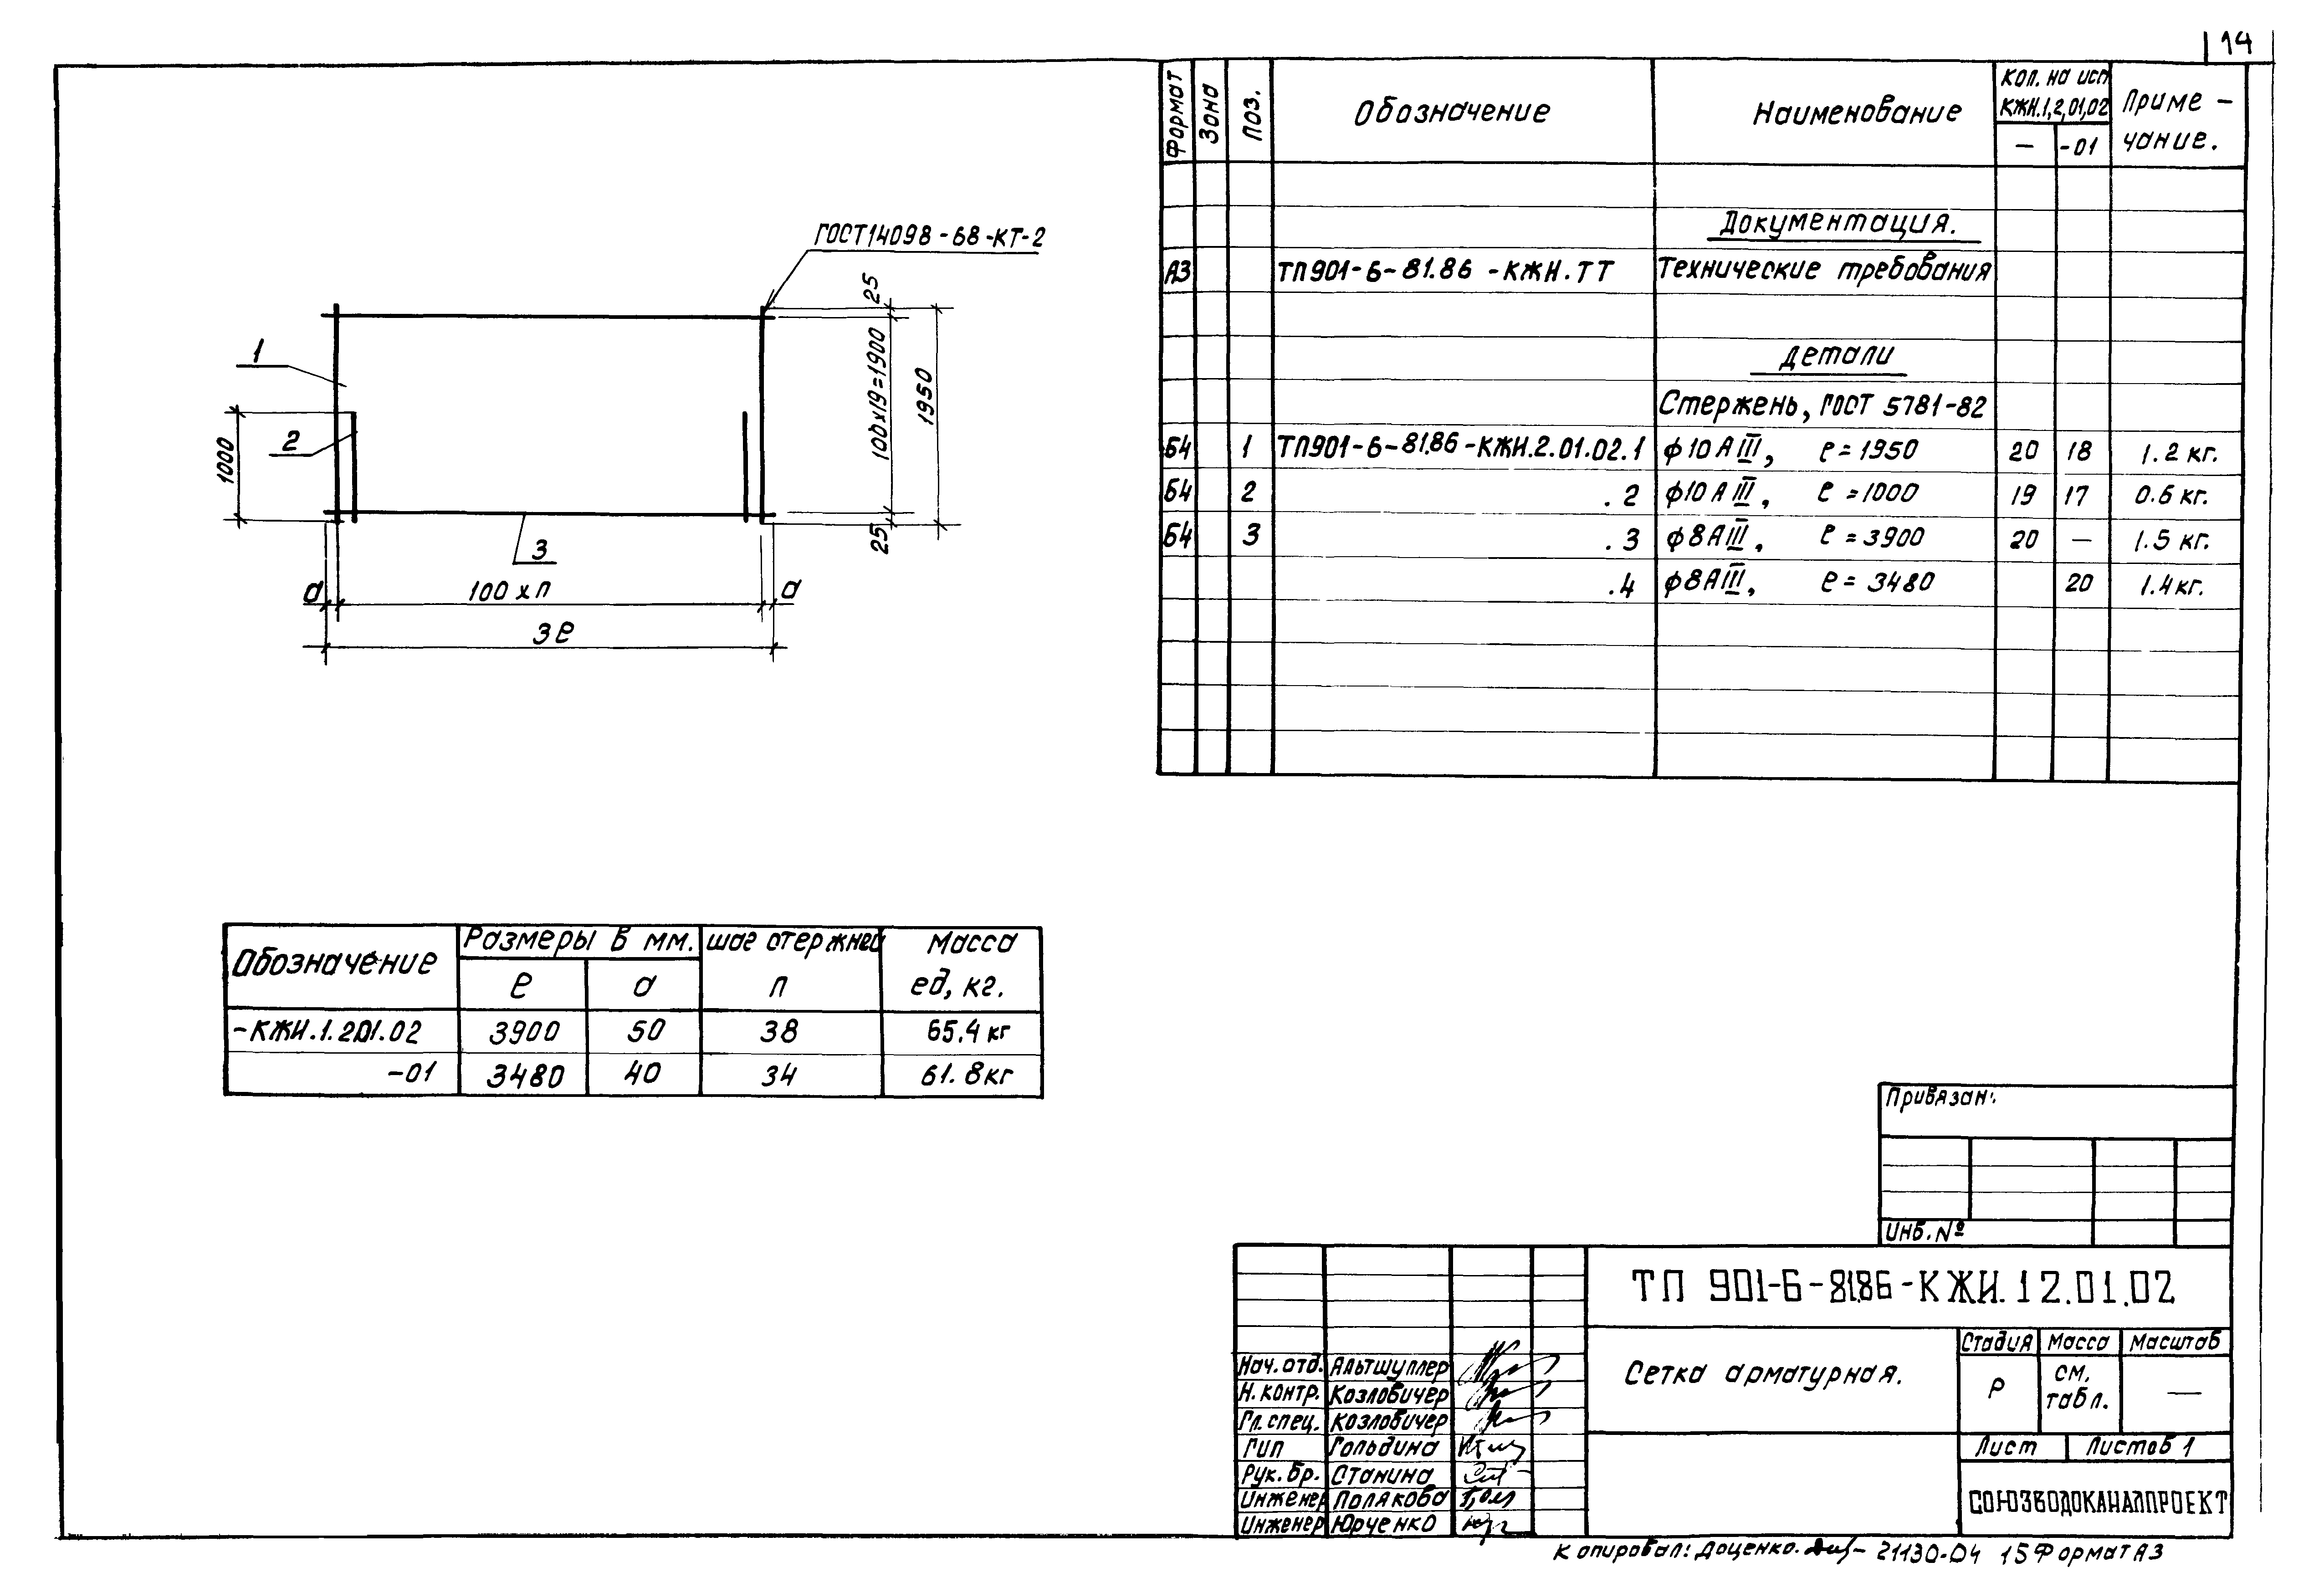 14
Формат Зона Поз. Обозначение Наименование Кол. на исп КЖИ.1,2,01,02 Приме-
— -01 чание.
Документация.
А3 ТП901-6-81.86-КЖИ.ТТ Технические требования
Детали
Стержень, ГОСТ 5781-82
Б4 1 ТП901-6-81.86-КЖИ.2.01.02.1 ф10АIII, ℓ=1950 20 18 1.2 кг.
Б4 2 .2 ф10АIII, ℓ=1000 19 17 0.6 кг.
Б4 3 .3 ф8АIII, ℓ=3900 20 — 1.5 кг.
.4 ф8АIII, ℓ=3480 20 1.4 кг.
ГОСТ14098-68-КТ-2
1
2
3
1000
25
100х19=1900
1950
25
а 100 х п а
3ℓ
Обозначение Размеры в мм. шаг стержней Масса
ℓ а п ед, кг.
-КЖИ.1.2.01.02 3900 50 38 65.4 кг
-01 3480 40 34 61.8 кг
Привязан:
Инв.№
ТП 901-6-81.86-КЖИ.1 2.01.02
Сетка арматурная.
Стадия Масса Масштаб
Р см. табл. —
Лист Листов 1
СОЮЗВОДОКАНАЛПРОЕКТ
Нач. отд. Альтшуллер
Н. контр. Козловичер
Гл. спец. Козловичер
Гип Гольдина
Рук. бр. Станина
Инженер Полякова
Инженер Юрченко
Копировал: Доценко. 21130-04 15 Формат А3